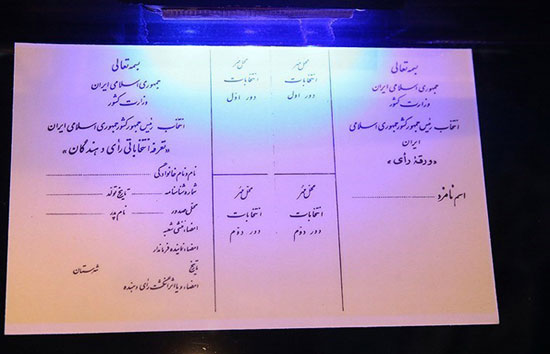 بسمه تعالی
جمهوری اسلامی ایران
وزارت کشور
انتخاب رئیس جمهور کشور جمهوری اسلامی ایران
«ورقهٔ رأی»
اسم نامزد
محل مهر
انتخابات
دور اول
محل مهر
انتخابات
دور اول
محل مهر
انتخابات
دور دوم
محل مهر
انتخابات
دور دوم
بسمه تعالی
جمهوری اسلامی ایران
وزارت کشور
انتخاب رئیس جمهور کشور جمهوری اسلامی ایران
«تعرفه انتخاباتی رأی دهندگان»
نام و نام خانوادگی
شماره شناسنامه تاریخ تولد
محل صدور نام پدر
امضاء منشی شعبه
امضاء نماینده فرماندار
تاریخ شهرستان
امضاء و یا اثر انگشت رأی دهنده